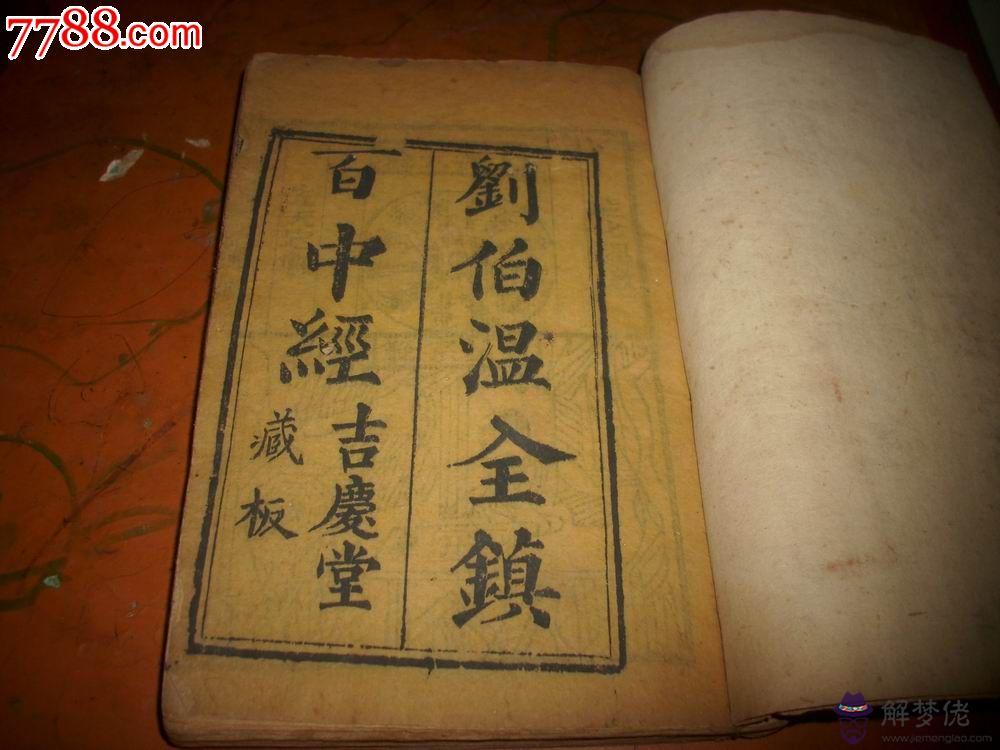 7788.com
劉伯温全鎮
百中經吉慶堂
藏板
解梦佬
www.jiemenglao.com